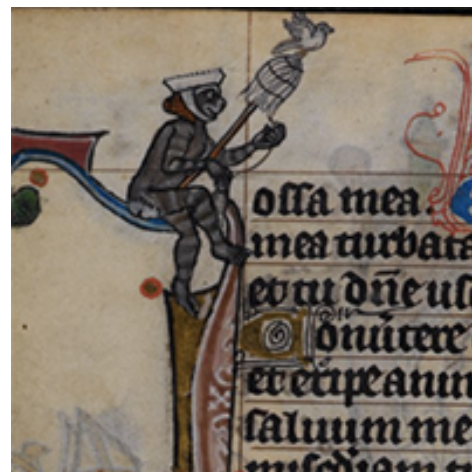 ossa mea.
mea turbata
et tu dñe usq
onuertere
et eripe anim
saluum me